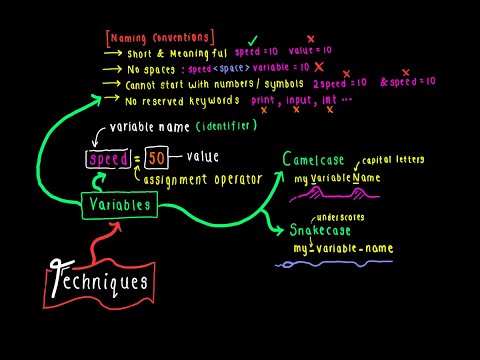 [Naming Conventions]
→ Short & Meaningful speed=10 ✓ value=10 ✗
→ No spaces : speed<space>variable=10 ✗
→ Cannot start with numbers/symbols 2speed=10 ✗ &speed=10 ✗
→ No reserved keywords print, input, int ... ✗ ✗ ✗
variable name (identifier)
speed = 50 value
assignment operator
Variables
Techniques
Camelcase capital letters
myVariableName
underscores
Snakecase
my-variable-name